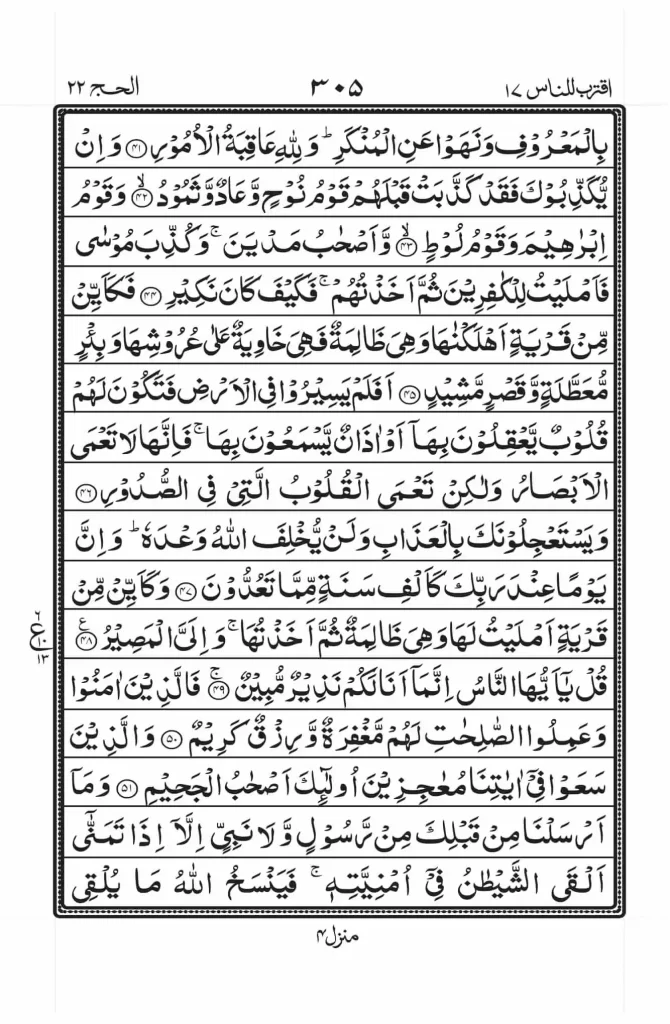 اقترب للناس ١٧ ٣٠٥ الحج ٢٢
بِالْمَعْرُوْفِ وَنَهَوْا عَنِ الْمُنْكَرِ ؕ وَلِلّٰهِ عَاقِبَةُ الْاُمُوْرِ ﴿۴۱﴾ وَاِنْ
يُّكَذِّبُوْكَ فَقَدْ كَذَّبَتْ قَبْلَهُمْ قَوْمُ نُوْحٍ وَّعَادٌ وَّثَمُوْدُ ۙ﴿۴۲﴾ وَقَوْمُ
اِبْرٰهِيْمَ وَقَوْمُ لُوْطٍ ۙ﴿۴۳﴾ وَّاَصْحٰبُ مَدْيَنَ ۚ وَكُذِّبَ مُوْسٰى
فَاَمْلَيْتُ لِلْكٰفِرِيْنَ ثُمَّ اَخَذْتُهُمْ ۚ فَكَيْفَ كَانَ نَكِيْرِ ﴿۴۴﴾ فَكَاَيِّنْ
مِّنْ قَرْيَةٍ اَهْلَكْنٰهَا وَهِىَ ظَالِمَةٌ فَهِىَ خَاوِيَةٌ عَلٰى عُرُوْشِهَا وَبِئْرٍ
مُّعَطَّلَةٍ وَّقَصْرٍ مَّشِيْدٍ ﴿۴۵﴾ اَفَلَمْ يَسِيْرُوْا فِى الْاَرْضِ فَتَكُوْنَ لَهُمْ
قُلُوْبٌ يَّعْقِلُوْنَ بِهَاۤ اَوْ اٰذَانٌ يَّسْمَعُوْنَ بِهَا ۚ فَاِنَّهَا لَا تَعْمَى
الْاَبْصَارُ وَلٰكِنْ تَعْمَى الْقُلُوْبُ الَّتِىْ فِى الصُّدُوْرِ ﴿۴۶﴾
وَيَسْتَعْجِلُوْنَكَ بِالْعَذَابِ وَلَنْ يُّخْلِفَ اللّٰهُ وَعْدَهٗ ؕ وَاِنَّ
يَوْمًا عِنْدَ رَبِّكَ كَاَلْفِ سَنَةٍ مِّمَّا تَعُدُّوْنَ ﴿۴۷﴾ وَكَاَيِّنْ مِّنْ
قَرْيَةٍ اَمْلَيْتُ لَهَا وَهِىَ ظَالِمَةٌ ثُمَّ اَخَذْتُهَا ۚ وَاِلَىَّ الْمَصِيْرُ ﴿۴۸﴾ ع
٦ ع ١٣
قُلْ يٰۤاَيُّهَا النَّاسُ اِنَّمَاۤ اَنَا لَكُمْ نَذِيْرٌ مُّبِيْنٌ ۚ﴿۴۹﴾ فَالَّذِيْنَ اٰمَنُوْا
وَعَمِلُوا الصّٰلِحٰتِ لَهُمْ مَّغْفِرَةٌ وَّرِزْقٌ كَرِيْمٌ ﴿۵۰﴾ وَالَّذِيْنَ
سَعَوْا فِىْۤ اٰيٰتِنَا مُعٰجِزِيْنَ اُولٰٓئِكَ اَصْحٰبُ الْجَحِيْمِ ﴿۵۱﴾ وَمَاۤ
اَرْسَلْنَا مِنْ قَبْلِكَ مِنْ رَّسُوْلٍ وَّلَا نَبِىٍّ اِلَّاۤ اِذَا تَمَنّٰٓى
اَلْقَى الشَّيْطٰنُ فِىْۤ اُمْنِيَّتِهٖ ۚ فَيَنْسَخُ اللّٰهُ مَا يُلْقِى
منزل۴